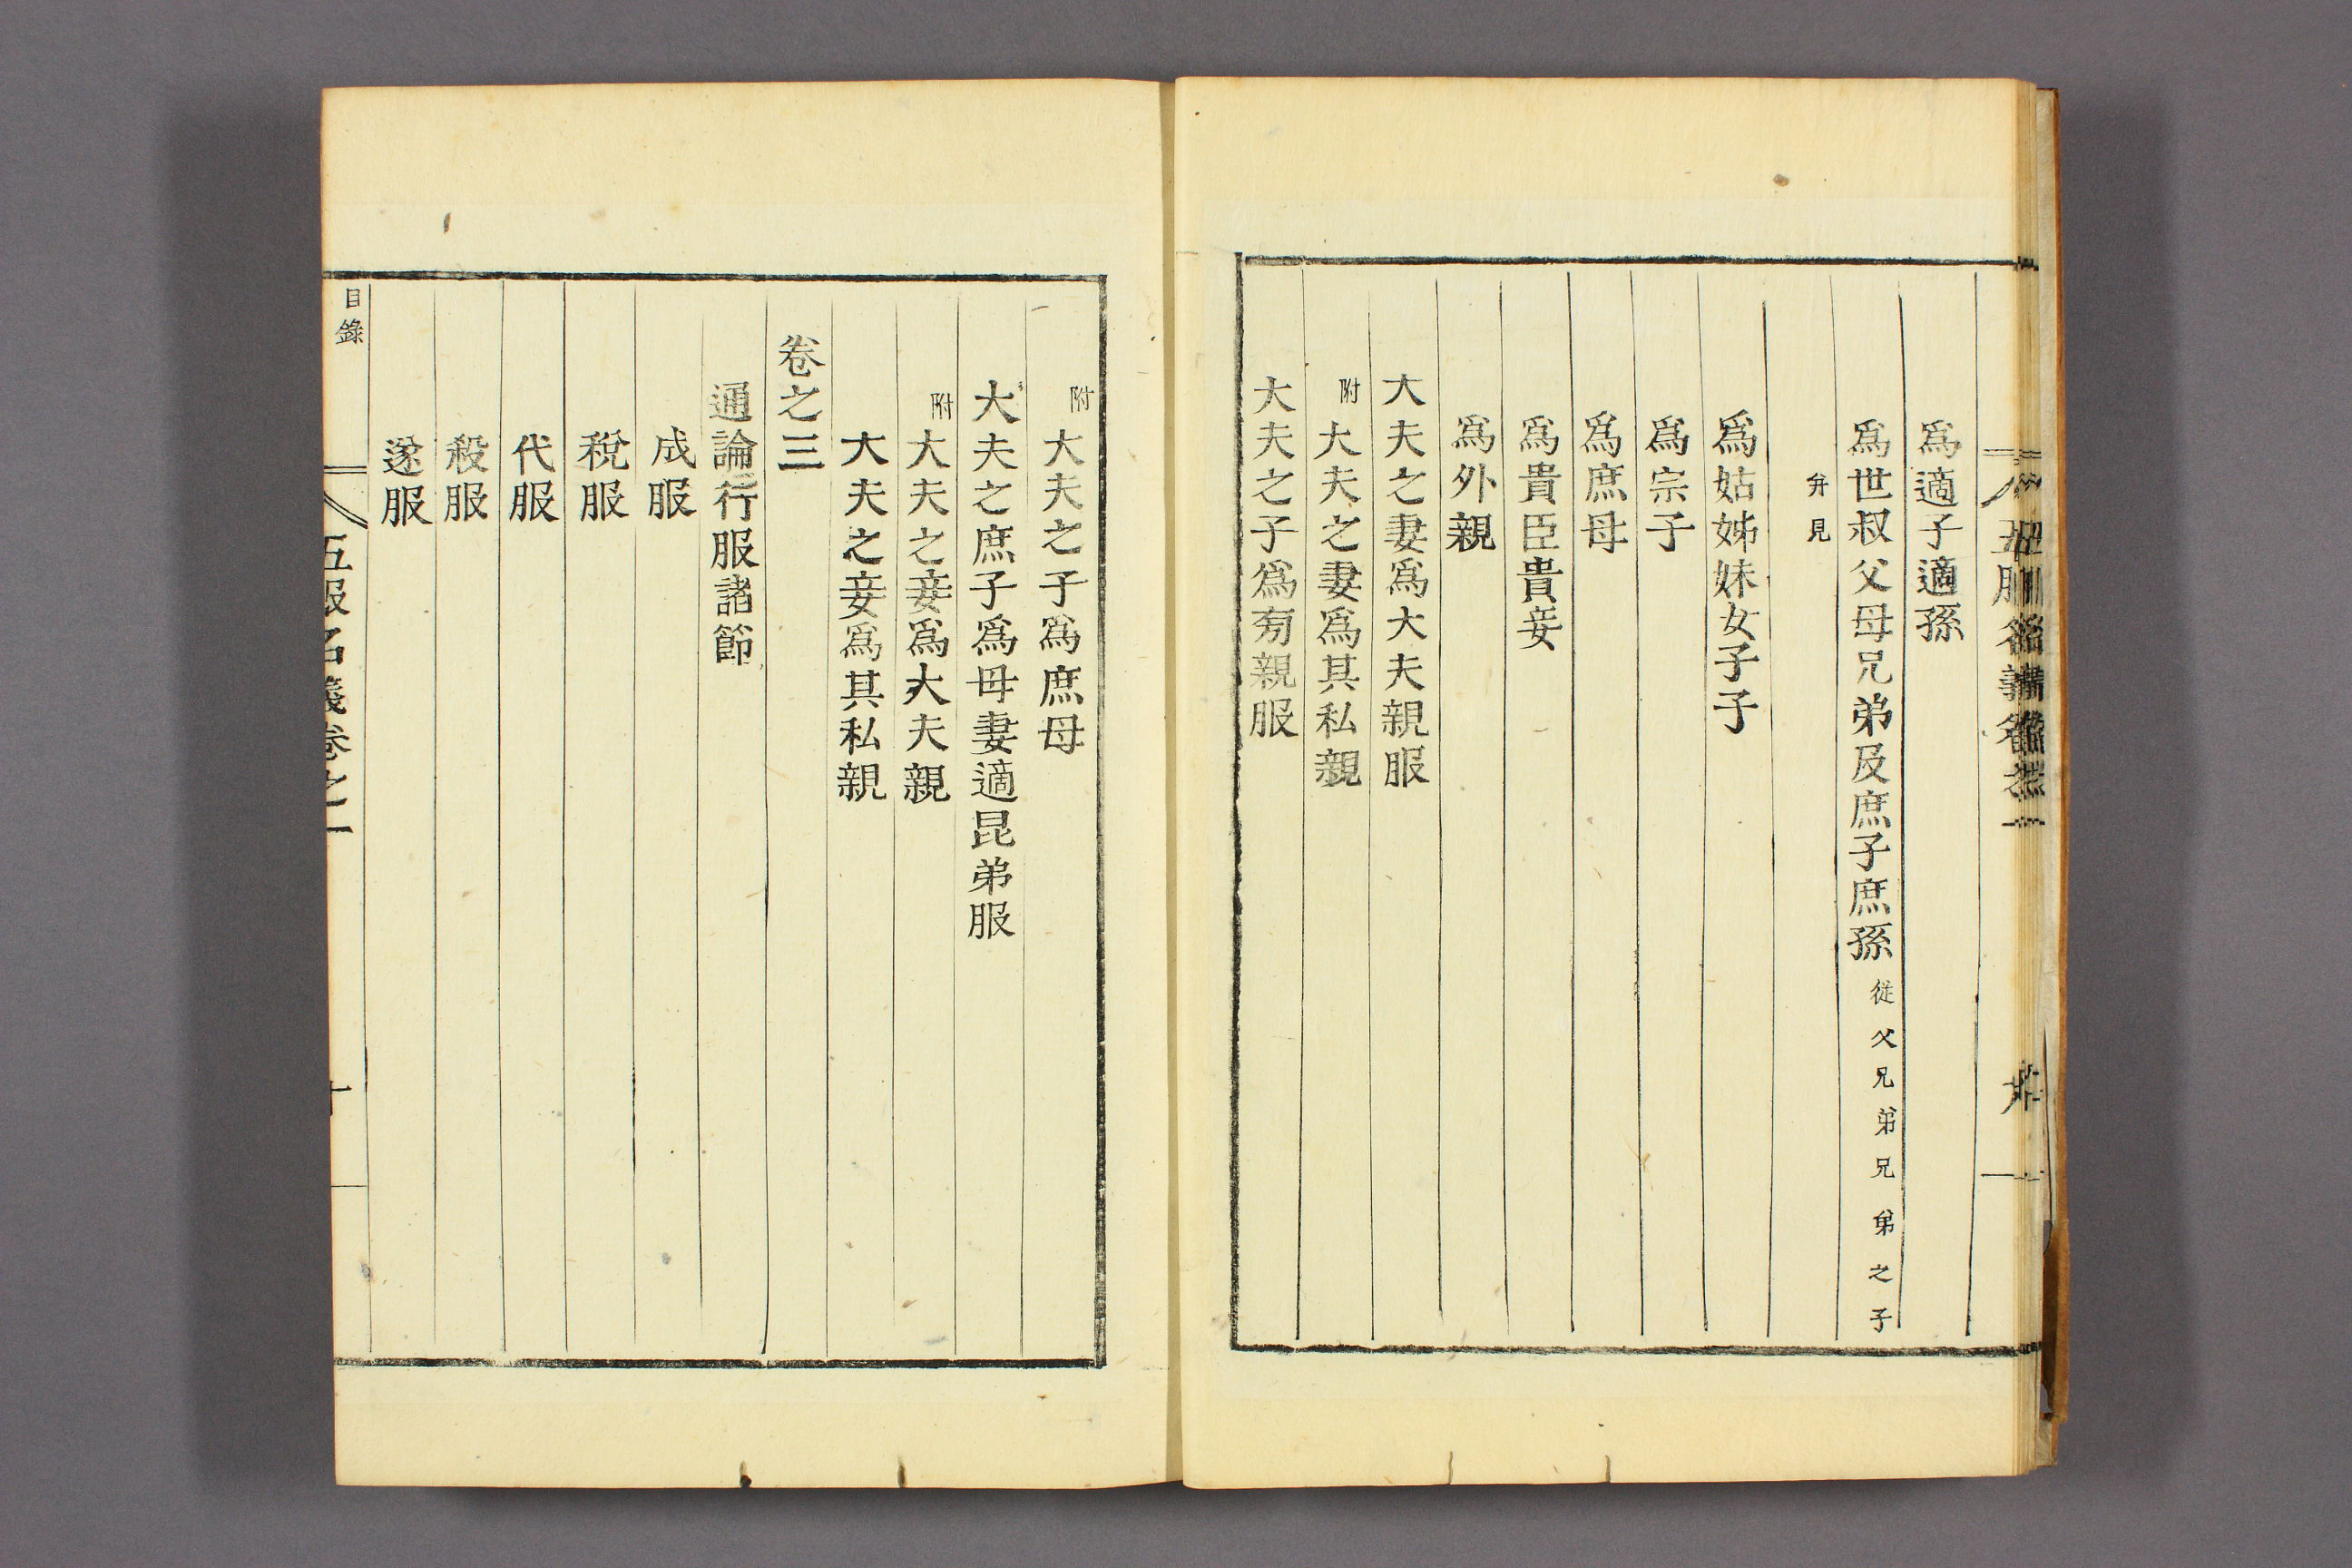 爲適子適孫
爲世叔父母兄弟及庶子庶孫從父兄弟兄弟之子
弁見
爲姑姊妹女子子
爲宗子
爲庶母
爲貴臣貴妾
爲外親
大夫之妻爲大夫親服
附大夫之妻爲其私親
大夫之子爲旁親服
附大夫之子爲庶母
大夫之庶子爲母妻適昆弟服
附大夫之妾爲大夫親
大夫之妾爲其私親
卷之三
通論行服諸節
成服
稅服
代服
殺服
遂服
目錄
五服名義卷之一
十